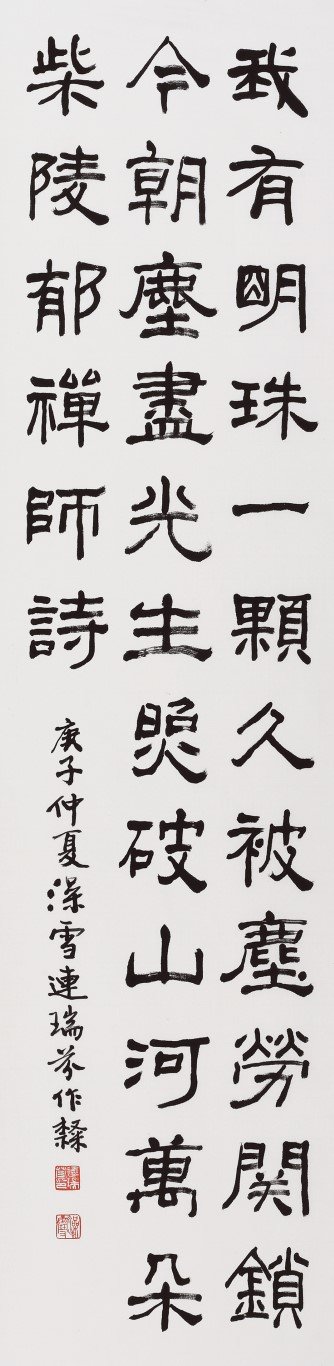 我有明珠一顆久被塵勞関鎖
今朝塵盡光生照破山河萬朵
柴陵郁禪師詩
庚子仲夏澡雪連瑞芬作隸